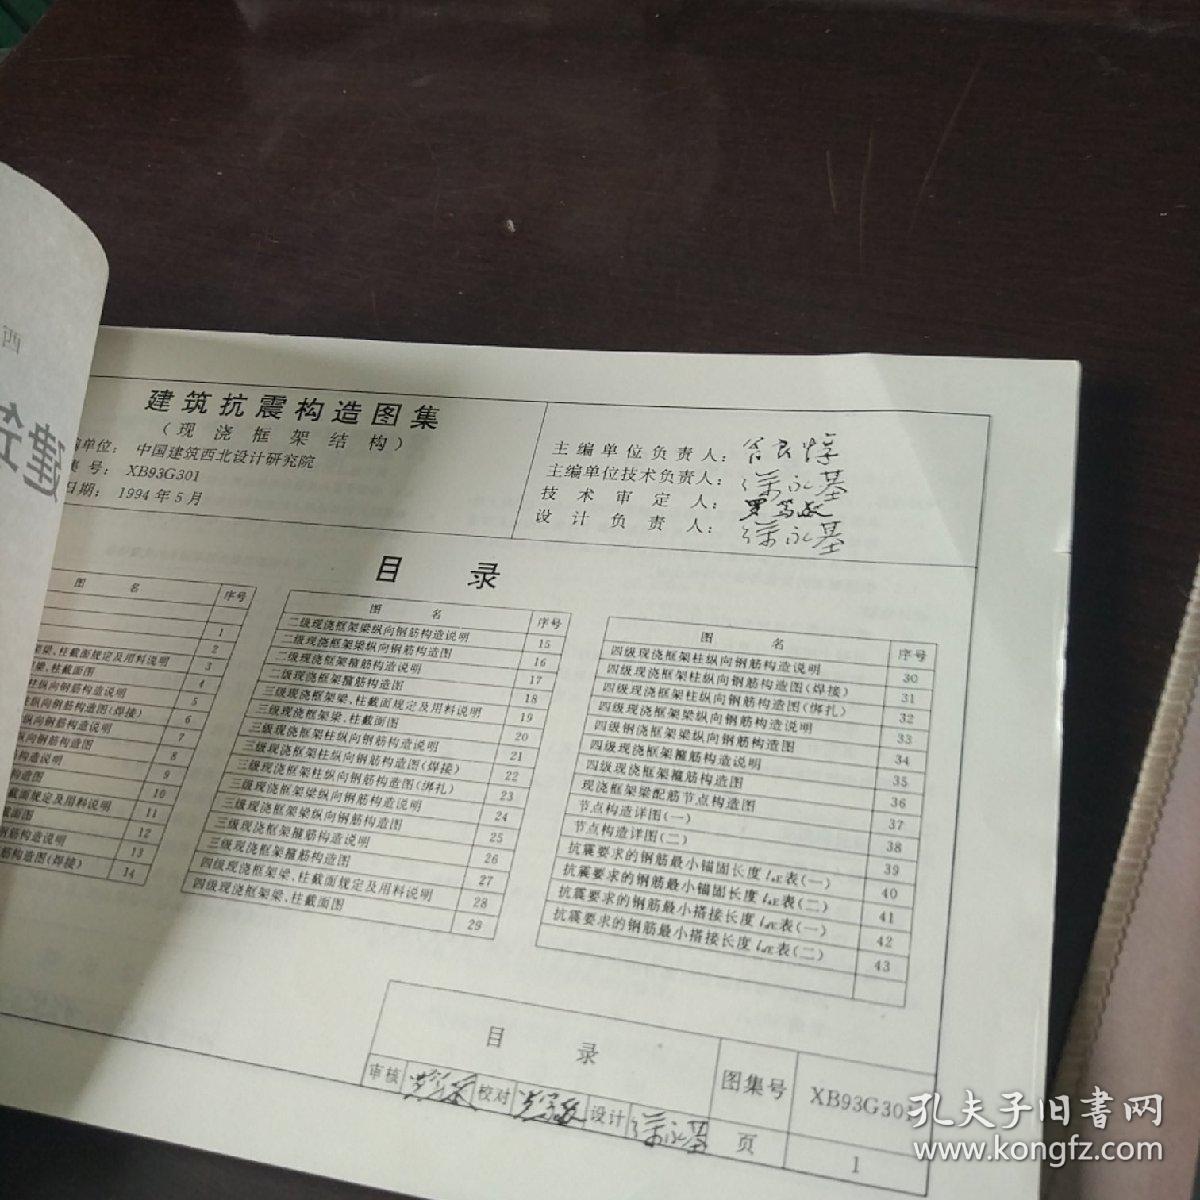 西
建筑
建筑抗震构造图集
(现浇框架结构)
编单位: 中国建筑西北设计研究院
号: XB93G301
日期: 1994年5月
主编单位负责人:
主编单位技术负责人:
技术审定人:
设计负责人:
目 录
图 名 序号
1
2
梁、柱截面规定及用料说明 3
梁、柱截面图 4
柱纵向钢筋构造说明 5
柱纵向钢筋构造图(焊接) 6
纵向钢筋构造说明 7
纵向钢筋构造图 8
构造说明 9
构造图 10
截面规定及用料说明 11
截面图 12
钢筋构造说明 13
筋构造图(焊接) 14
图 名 序号
二级现浇框架梁纵向钢筋构造说明 15
二级现浇框架梁纵向钢筋构造图 16
二级现浇框架箍筋构造说明 17
二级现浇框架箍筋构造图 18
三级现浇框架梁、柱截面规定及用料说明 19
三级现浇框架梁、柱截面图 20
三级现浇框架柱纵向钢筋构造说明 21
三级现浇框架柱纵向钢筋构造图(焊接) 22
三级现浇框架柱纵向钢筋构造图(绑扎) 23
三级现浇框架梁纵向钢筋构造说明 24
三级现浇框架梁纵向钢筋构造图 25
三级现浇框架箍筋构造说明 26
三级现浇框架箍筋构造图 27
四级现浇框架梁、柱截面规定及用料说明 28
四级现浇框架梁、柱截面图 29
图 名 序号
四级现浇框架柱纵向钢筋构造说明 30
四级现浇框架柱纵向钢筋构造图(焊接) 31
四级现浇框架柱纵向钢筋构造图(绑扎) 32
四级现浇框架梁纵向钢筋构造说明 33
四级钢浇框架梁纵向钢筋构造图 34
四级现浇框架箍筋构造说明 35
四级现浇框架箍筋构造图 36
现浇框架梁配筋节点构造图 37
节点构造详图(一) 38
节点构造详图(二) 39
抗震要求的钢筋最小锚固长度laE表(一) 40
抗震要求的钢筋最小锚固长度laE表(二) 41
抗震要求的钢筋最小搭接长度laE表(一) 42
抗震要求的钢筋最小搭接长度laE表(二) 43
目 录
图集号 XB93G30
审核 校对 设计 页 1
孔夫子旧书网
www.kongfz.com